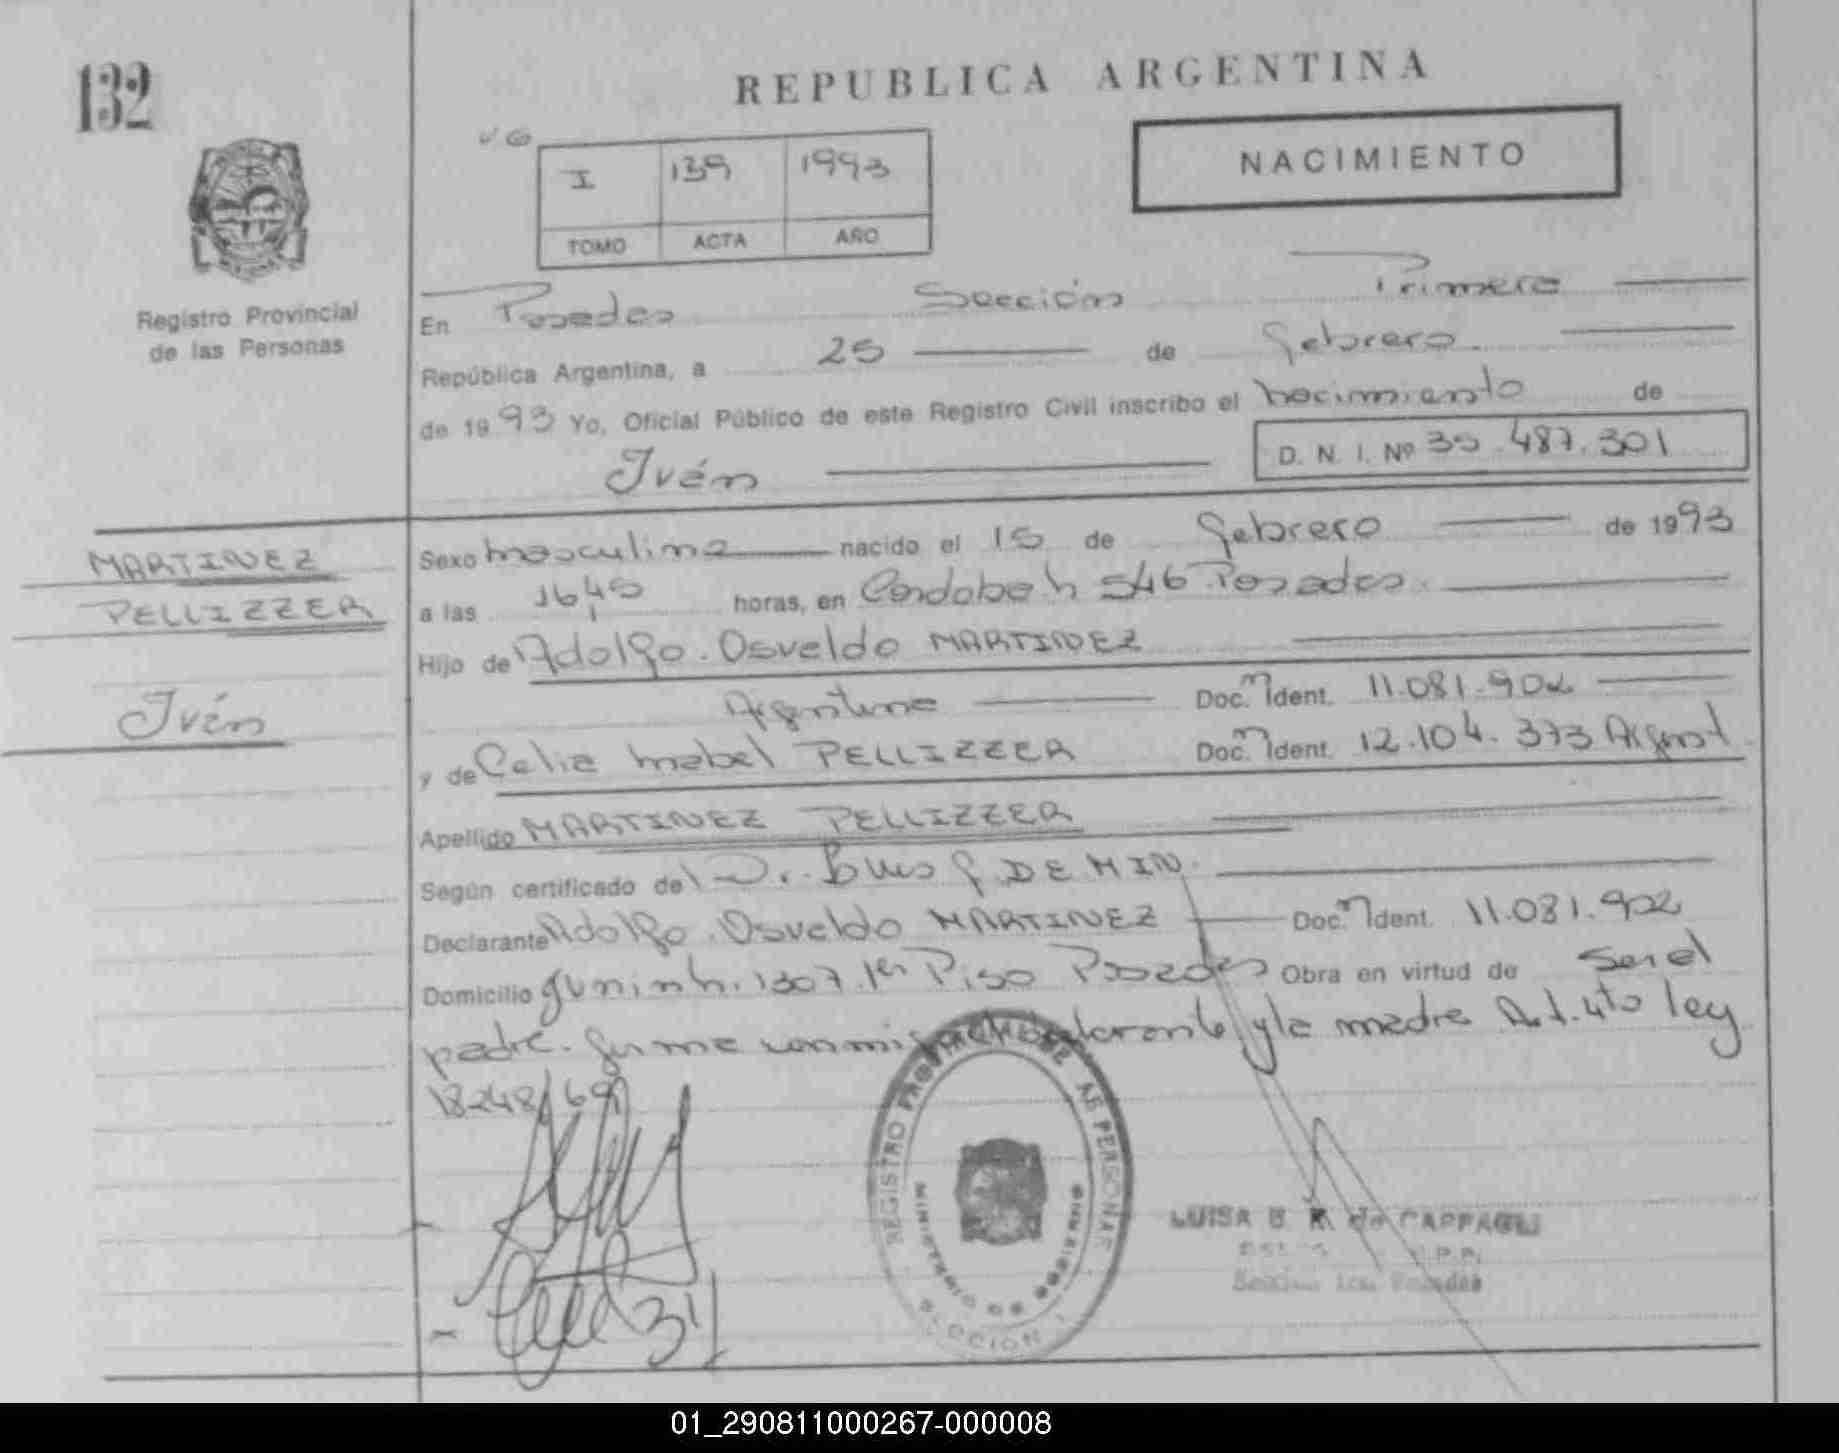 132
REPUBLICA ARGENTINA
I 139 1993
TOMO ACTA AÑO
NACIMIENTO
Registro Provincial
de las Personas
En Posadas Sección Primera
República Argentina, a 25 de febrero
de 1993 Yo, Oficial Público de este Registro Civil inscribo el nacimiento de
Iván D. N. I. Nº 35.487.301
MARTINEZ
PELLIZZER
Iván
Sexo masculino nacido el 15 de febrero de 1993
a las 16,45 horas, en Cordoba n 546 Posadas.
Hijo de Adolfo Osvaldo MARTINEZ
Argentino Doc. Ident. 11.081.902
y de Celia Mabel PELLIZZER Doc. Ident. 12.104.373 Argent
Apellido MARTINEZ PELLIZZER
Según certificado del Dr. DEMIN.
Declarante Adolfo Osvaldo MARTINEZ Doc. Ident. 11.081.902
Domicilio Junin n. 1307. 1er Piso Posadas Obra en virtud de ser el
padre. firma conmigo el declarante y la madre Art. 4to ley
18248/69
REGISTRO PROVINCIAL DE LAS PERSONAS
MINISTERIO DE GOBIERNO
SECCION 1
LUISA B. de CAPPAGLI
Posadas
01_290811000267-000008